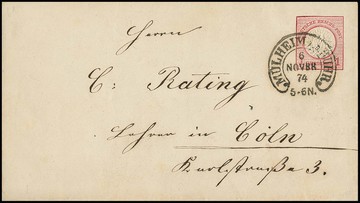 Herrn
C: Rating
Lehrer in Cöln
Karlstraße 3.
MÜLHEIM A. D. RUHR.
6
NOVBR
74
5-6N.